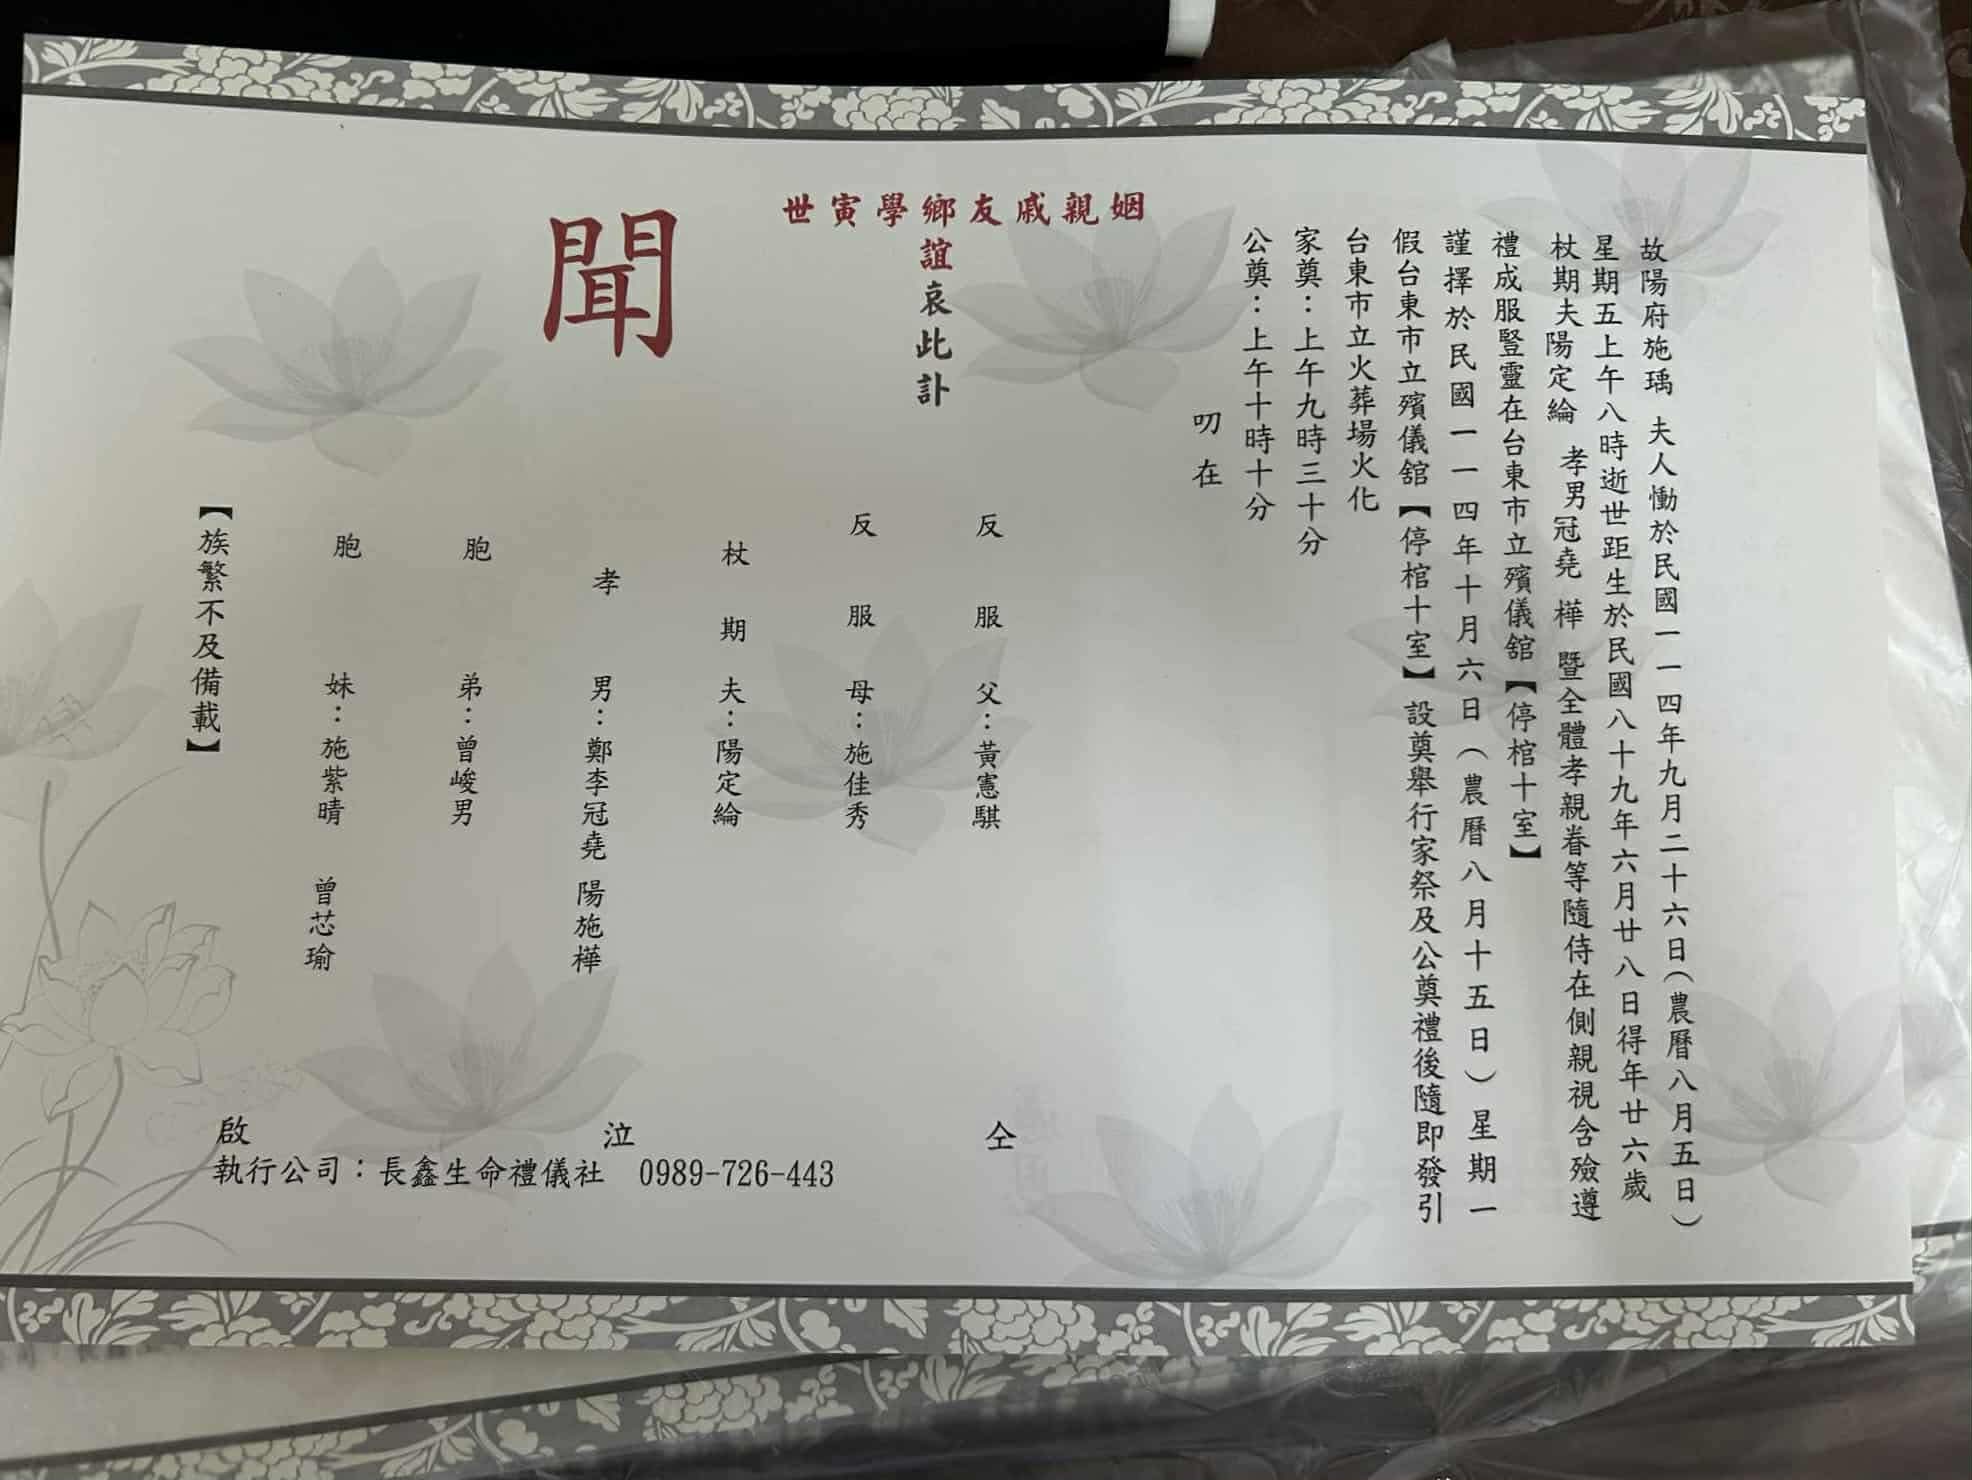 故陽府施瑀 夫人慟於民國一一四年九月二十六日(農曆八月五日)
星期五上午八時逝世距生於民國八十九年六月廿八日得年廿六歲
杖期夫陽定綸 孝男冠堯 樺 暨全體孝親眷等隨侍在側親視含殮遵
禮成服豎靈在台東市立殯儀舘【停棺十室】
謹擇於民國一一四年十月六日(農曆八月十五日)星期一
假台東市立殯儀舘【停棺十室】設奠舉行家祭及公奠禮後隨即發引
台東市立火葬場火化
家奠：上午九時三十分
公奠：上午十時十分
叨在
姻親戚友鄉學寅世
誼哀此訃
聞
反服父：黃憲騏
反服母：施佳秀
杖期夫：陽定綸
孝男：鄭李冠堯 陽施樺
胞弟：曾峻男
胞妹：施紫晴 曾芯瑜
【族繁不及備載】
仝 泣 啟
執行公司：長鑫生命禮儀社 0989-726-443